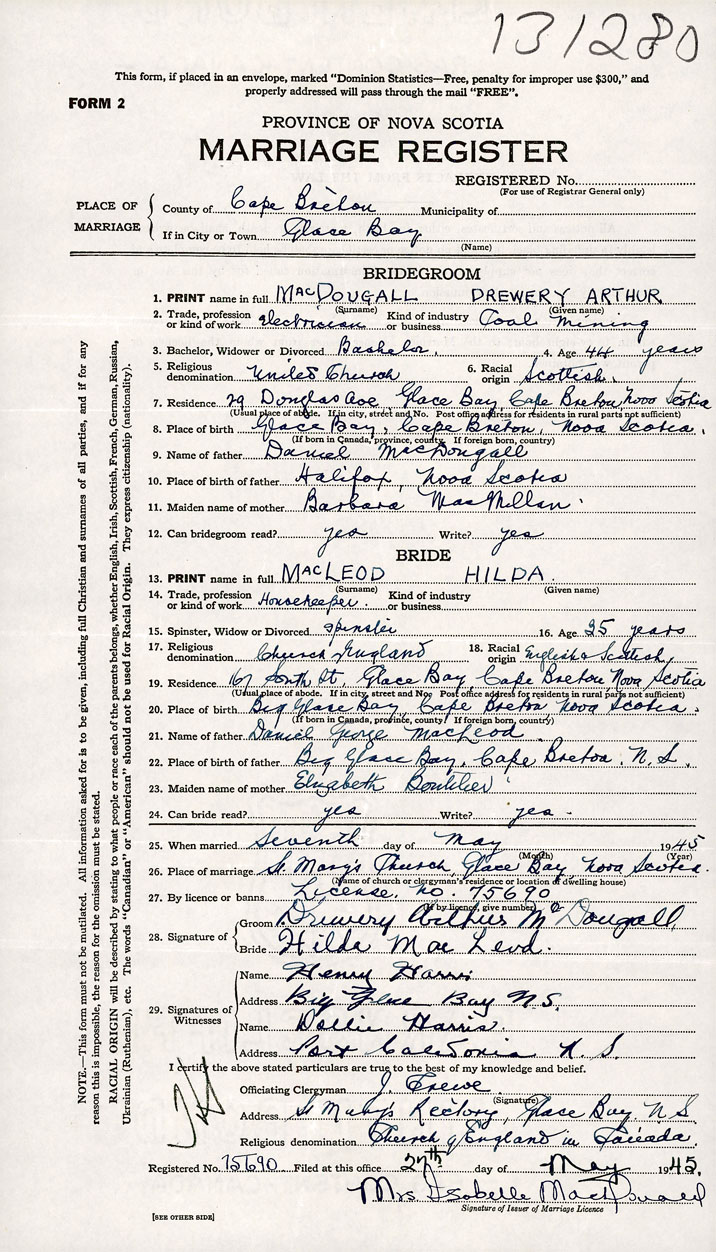 131280
This form, if placed in an envelope, marked "Dominion Statistics—Free, penalty for improper use $300," and
properly addressed will pass through the mail "FREE".
FORM 2
PROVINCE OF NOVA SCOTIA
MARRIAGE REGISTER
REGISTERED No.
(For use of Registrar General only)
PLACE OF MARRIAGE
County of Cape Breton Municipality of
If in City or Town Glace Bay
(Name)
BRIDEGROOM
1. PRINT name in full MACDOUGALL DREWERY ARTHUR
(Surname) (Given name)
2. Trade, profession or kind of work electrician Kind of industry or business Coal Mining
3. Bachelor, Widower or Divorced Bachelor. 4. Age 44 years
5. Religious denomination United Church 6. Racial origin Scottish.
7. Residence 29 Douglas Ave, Glace Bay, Cape Breton, Nova Scotia
(Usual place of abode. If in city, street and No. Post office address for residents in rural parts not sufficient)
8. Place of birth Glace Bay, Cape Breton, Nova Scotia.
(If born in Canada, province, county. If foreign born, country)
9. Name of father Daniel MacDougall
10. Place of birth of father Halifax, Nova Scotia
11. Maiden name of mother Barbara MacMillan.
12. Can bridegroom read? yes Write? yes
BRIDE
13. PRINT name in full MACLEOD HILDA.
(Surname) (Given name)
14. Trade, profession or kind of work Housekeeper. Kind of industry or business
15. Spinster, Widow or Divorced spinster 16. Age 35 years
17. Religious denomination Church England 18. Racial origin English & Scottish
19. Residence 167 South St, Glace Bay Cape Breton Nova Scotia
(Usual place of abode. If in city, street and No. Post office address for residents in rural parts not sufficient)
20. Place of birth Big Glace Bay, Cape Breton Nova Scotia.
(If born in Canada, province, county. If foreign born, country)
21. Name of father Daniel George MacLeod
22. Place of birth of father Big Glace Bay, Cape Breton. N.S.
23. Maiden name of mother Elizabeth Boutilier
24. Can bride read? yes Write? yes.
25. When married Seventh day of May 1945
(Month) (Year)
26. Place of marriage St. Mary's Church, Glace Bay, Nova Scotia.
(Name of church or clergyman's residence or location of dwelling house)
27. By licence or banns License. no. 75690
(If by licence, give number)
28. Signature of
Groom Drewery Arthur McDougall
Bride Hilda Mac Leod.
29. Signatures of Witnesses
Name Henry Harris
Address Big Glace Bay N.S.
Name Dollie Harris.
Address Port Caledonia N.S.
I certify the above stated particulars are true to the best of my knowledge and belief.
Officiating Clergyman J. Trewe
(Signature)
Address St Mary's Rectory, Glace Bay N.S.
Religious denomination Church of England in Canada.
Registered No. 75690 Filed at this office 27th day of May 1945.
Mrs Isabelle MacDonald
Signature of Issuer of Marriage Licence
[SEE OTHER SIDE]
NOTE.—This form must not be mutilated. All information asked for is to be given, including full Christian and surnames of all parties, and if for any
reason this is impossible, the reason for the omission must be stated.
RACIAL ORIGIN will be described by stating to what people or race each of the parents belongs, whether English, Irish, Scottish, French, German, Russian,
Ukrainian (Ruthenian), etc. The words "Canadian" or "American" should not be used for Racial Origin. They express citizenship (nationality).